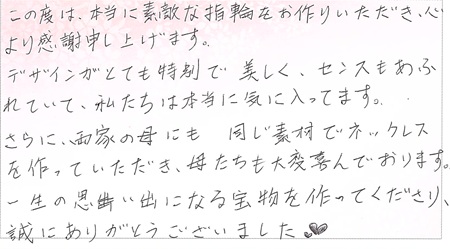 この度は、本当に素敵な指輪をお作りいただき、心
より感謝申し上げます。
デザインがとても特別で 美しく、センスもあふ
れていて、私たちは本当に気に入ってます。
さらに、両家の母にも 同じ素材でネックレス
を作っていただき、母たちも大変喜んでおります。
一生の思い出になる宝物を作ってくださり、
誠にありがとうございました